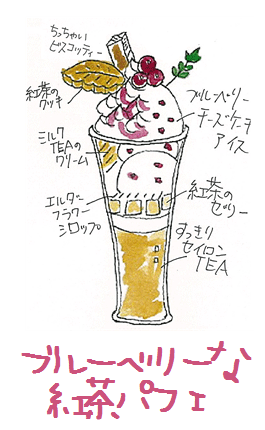 ちっちゃい
ビスコッティー
紅茶の
クッキー
ブルーベリー
チーズケーキ
アイス
ミルク
TEAの
クリーム
エルダー
フラワー
シロップ
紅茶の
ゼリー
すっきり
セイロン
TEA
ブルーベリーな
紅茶パフェ